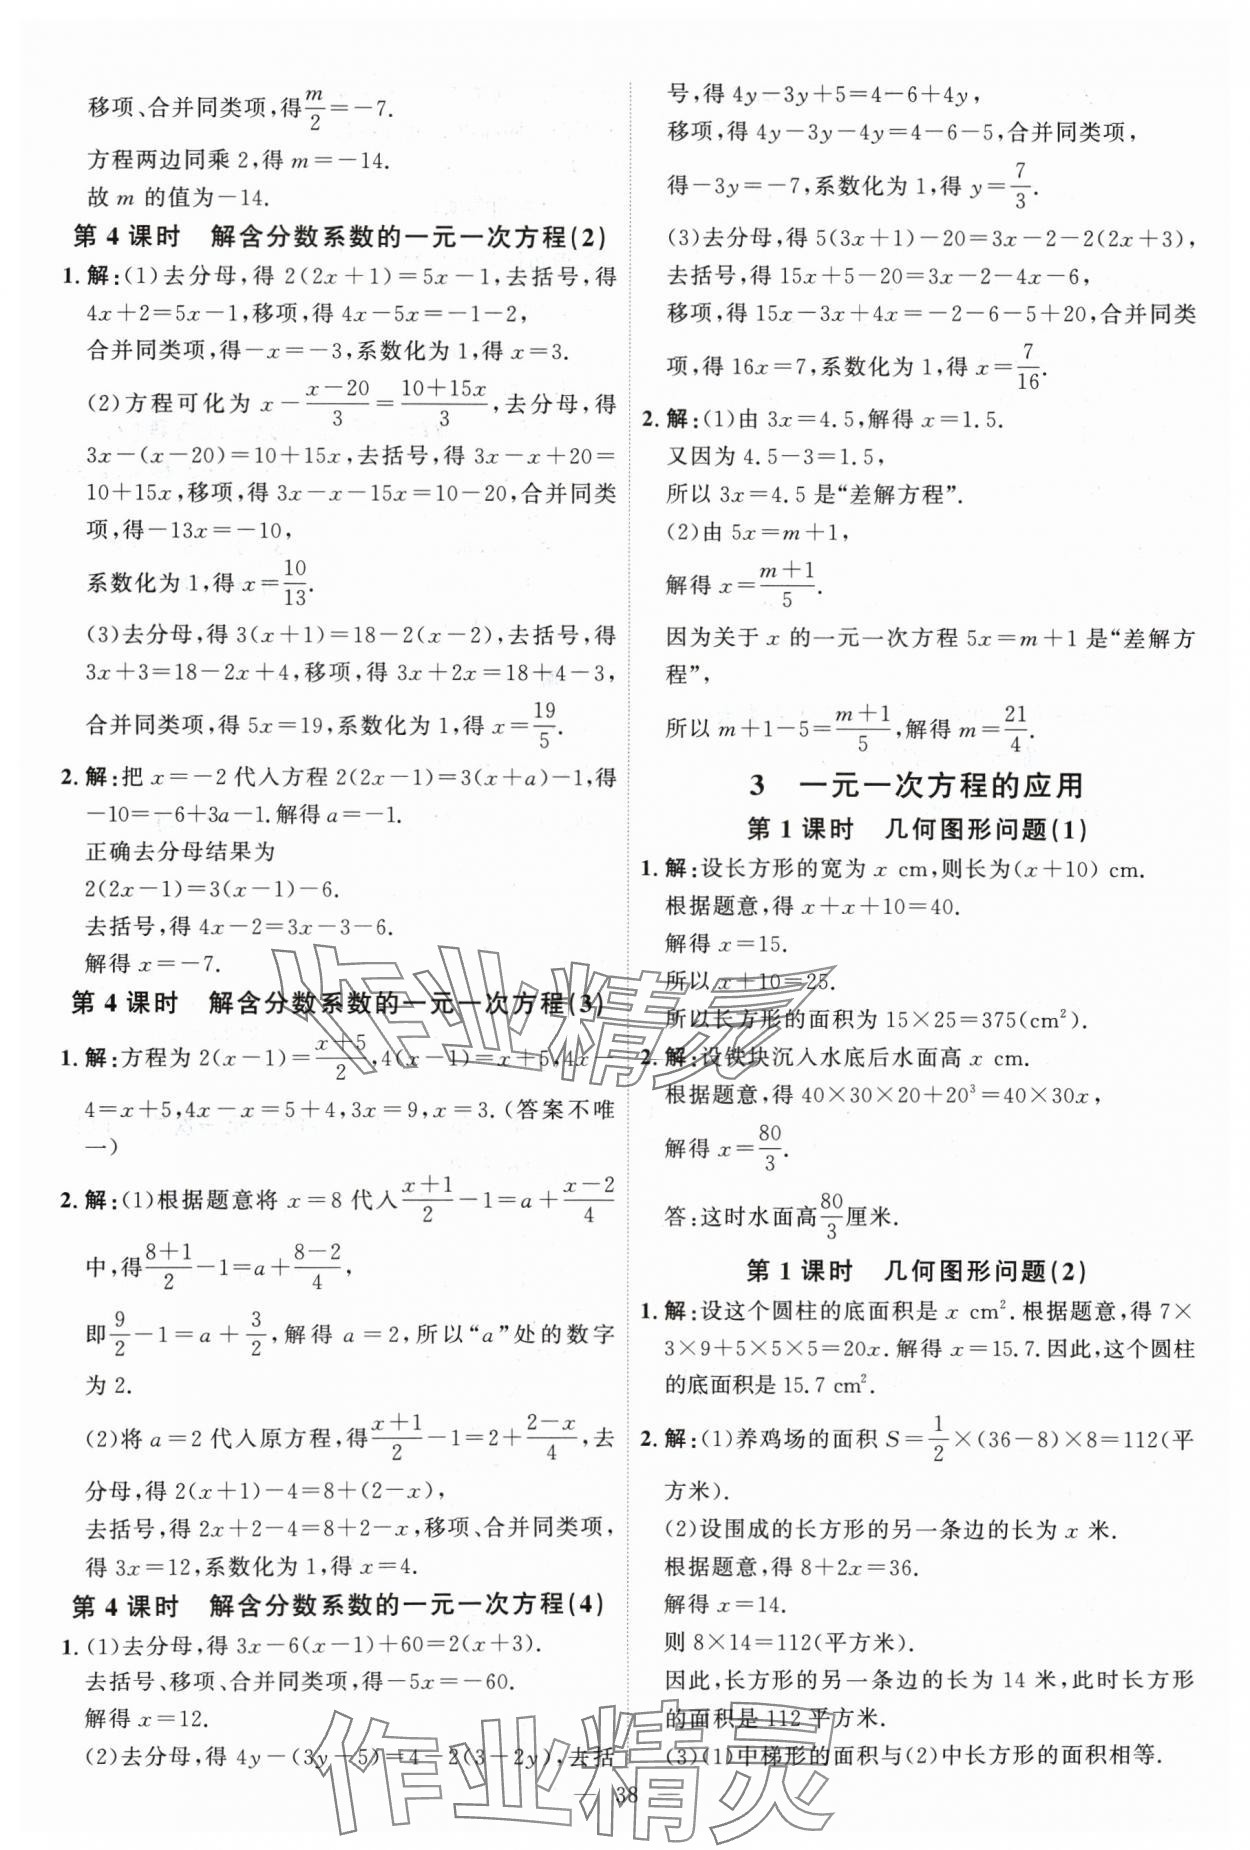 移项、合并同类项,得m/2=-7.
方程两边同乘2,得m=-14.
故m的值为-14.
第4课时 解含分数系数的一元一次方程(2)
1.解:(1)去分母,得2(2x+1)=5x-1,去括号,得
4x+2=5x-1,移项,得4x-5x=-1-2,
合并同类项,得-x=-3,系数化为1,得x=3.
(2)方程可化为x-(x-20)/3=(10+15x)/3,去分母,得
3x-(x-20)=10+15x,去括号,得3x-x+20=
10+15x,移项,得3x-x-15x=10-20,合并同类
项,得-13x=-10,
系数化为1,得x=10/13.
(3)去分母,得3(x+1)=18-2(x-2),去括号,得
3x+3=18-2x+4,移项,得3x+2x=18+4-3,
合并同类项,得5x=19,系数化为1,得x=19/5.
2.解:把x=-2代入方程2(2x-1)=3(x+a)-1,得
-10=-6+3a-1.解得a=-1.
正确去分母结果为
2(2x-1)=3(x-1)-6.
去括号,得4x-2=3x-3-6.
解得x=-7.
第4课时 解含分数系数的一元一次方程(3)
1.解:方程为2(x-1)=(x+5)/2,4(x-1)=x+5,4x-
4=x+5,4x-x=5+4,3x=9,x=3.(答案不唯
一)
2.解:(1)根据题意将x=8代入(x+1)/2-1=a+(x-2)/4
中,得(8+1)/2-1=a+(8-2)/4,
即9/2-1=a+3/2,解得a=2,所以“a”处的数字
为2.
(2)将a=2代入原方程,得(x+1)/2-1=2+(2-x)/4,去
分母,得2(x+1)-4=8+(2-x),
去括号,得2x+2-4=8+2-x,移项、合并同类项,
得3x=12,系数化为1,得x=4.
第4课时 解含分数系数的一元一次方程(4)
1.(1)去分母,得3x-6(x-1)+60=2(x+3).
去括号、移项、合并同类项,得-5x=-60.
解得x=12.
(2)去分母,得4y-(3y-5)=4-2(3-2y),去括
号,得4y-3y+5=4-6+4y,
移项,得4y-3y-4y=4-6-5,合并同类项,
得-3y=-7,系数化为1,得y=7/3.
(3)去分母,得5(3x+1)-20=3x-2-2(2x+3),
去括号,得15x+5-20=3x-2-4x-6,
移项,得15x-3x+4x=-2-6-5+20,合并同类
项,得16x=7,系数化为1,得x=7/16.
2.解:(1)由3x=4.5,解得x=1.5.
又因为4.5-3=1.5,
所以3x=4.5是“差解方程”.
(2)由5x=m+1,
解得x=(m+1)/5.
因为关于x的一元一次方程5x=m+1是“差解方
程”,
所以m+1-5=(m+1)/5,解得m=21/4.
3 一元一次方程的应用
第1课时 几何图形问题(1)
1.解:设长方形的宽为x cm,则长为(x+10) cm.
根据题意,得x+x+10=40.
解得x=15.
所以x+10=25.
所以长方形的面积为15×25=375(cm²).
2.解:设铁块沉入水底后水面高x cm.
根据题意,得40×30×20+20³=40×30x,
解得x=80/3.
答:这时水面高80/3厘米.
第1课时 几何图形问题(2)
1.解:设这个圆柱的底面积是x cm².根据题意,得7×
3×9+5×5×5=20x.解得x=15.7.因此,这个圆柱
的底面积是15.7 cm².
2.解:(1)养鸡场的面积S=1/2×(36-8)×8=112(平
方米).
(2)设围成的长方形的另一条边的长为x米.
根据题意,得8+2x=36.
解得x=14.
则8×14=112(平方米).
因此,长方形的另一条边的长为14米,此时长方形
的面积是112平方米.
(3)(1)中梯形的面积与(2)中长方形的面积相等.
— 38 —
作业精灵
作业精灵